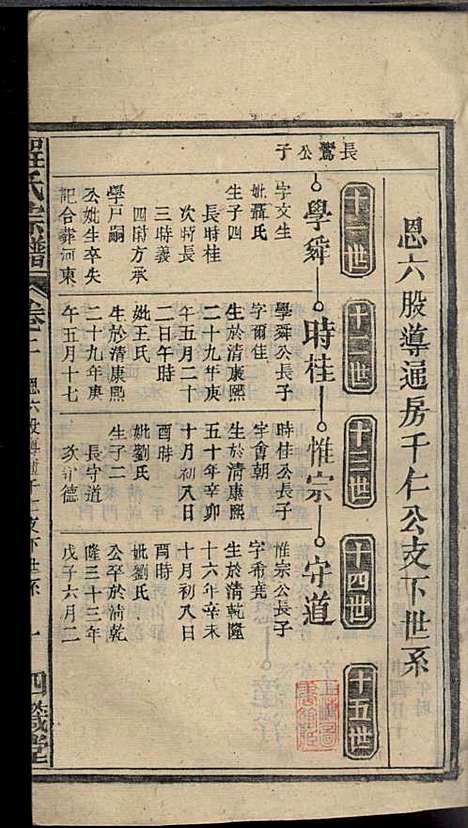 恩六股導通房千仁公支下世系
十一世
十二世
十三世
十四世
十五世
長鸞公子
學舜
時桂
惟宗
守道
字文生
妣聶氏
生子四
長時桂
次時長
三時義
四時方承
學戶嗣
公妣生卒失
記合葬河東
學舜公長子
字爾佳
生於清康熙
二十九年庚
午五月二十
二日午時
妣王氏
生於清康熙
二十九年庚
午五月十七
時桂公長子
字會朝
生於清康熙
五十年辛卯
十月初八日
酉時
妣劉氏
生子二
長守道
次守德
惟宗公長子
字希堯
生於清乾隆
十六年辛未
十月初八日
酉時
妣劉氏
公卒於清乾
隆三十三年
戊子六月二
氏宗譜
卷二
恩六股導通房千仁公支下世系
一
四箴堂